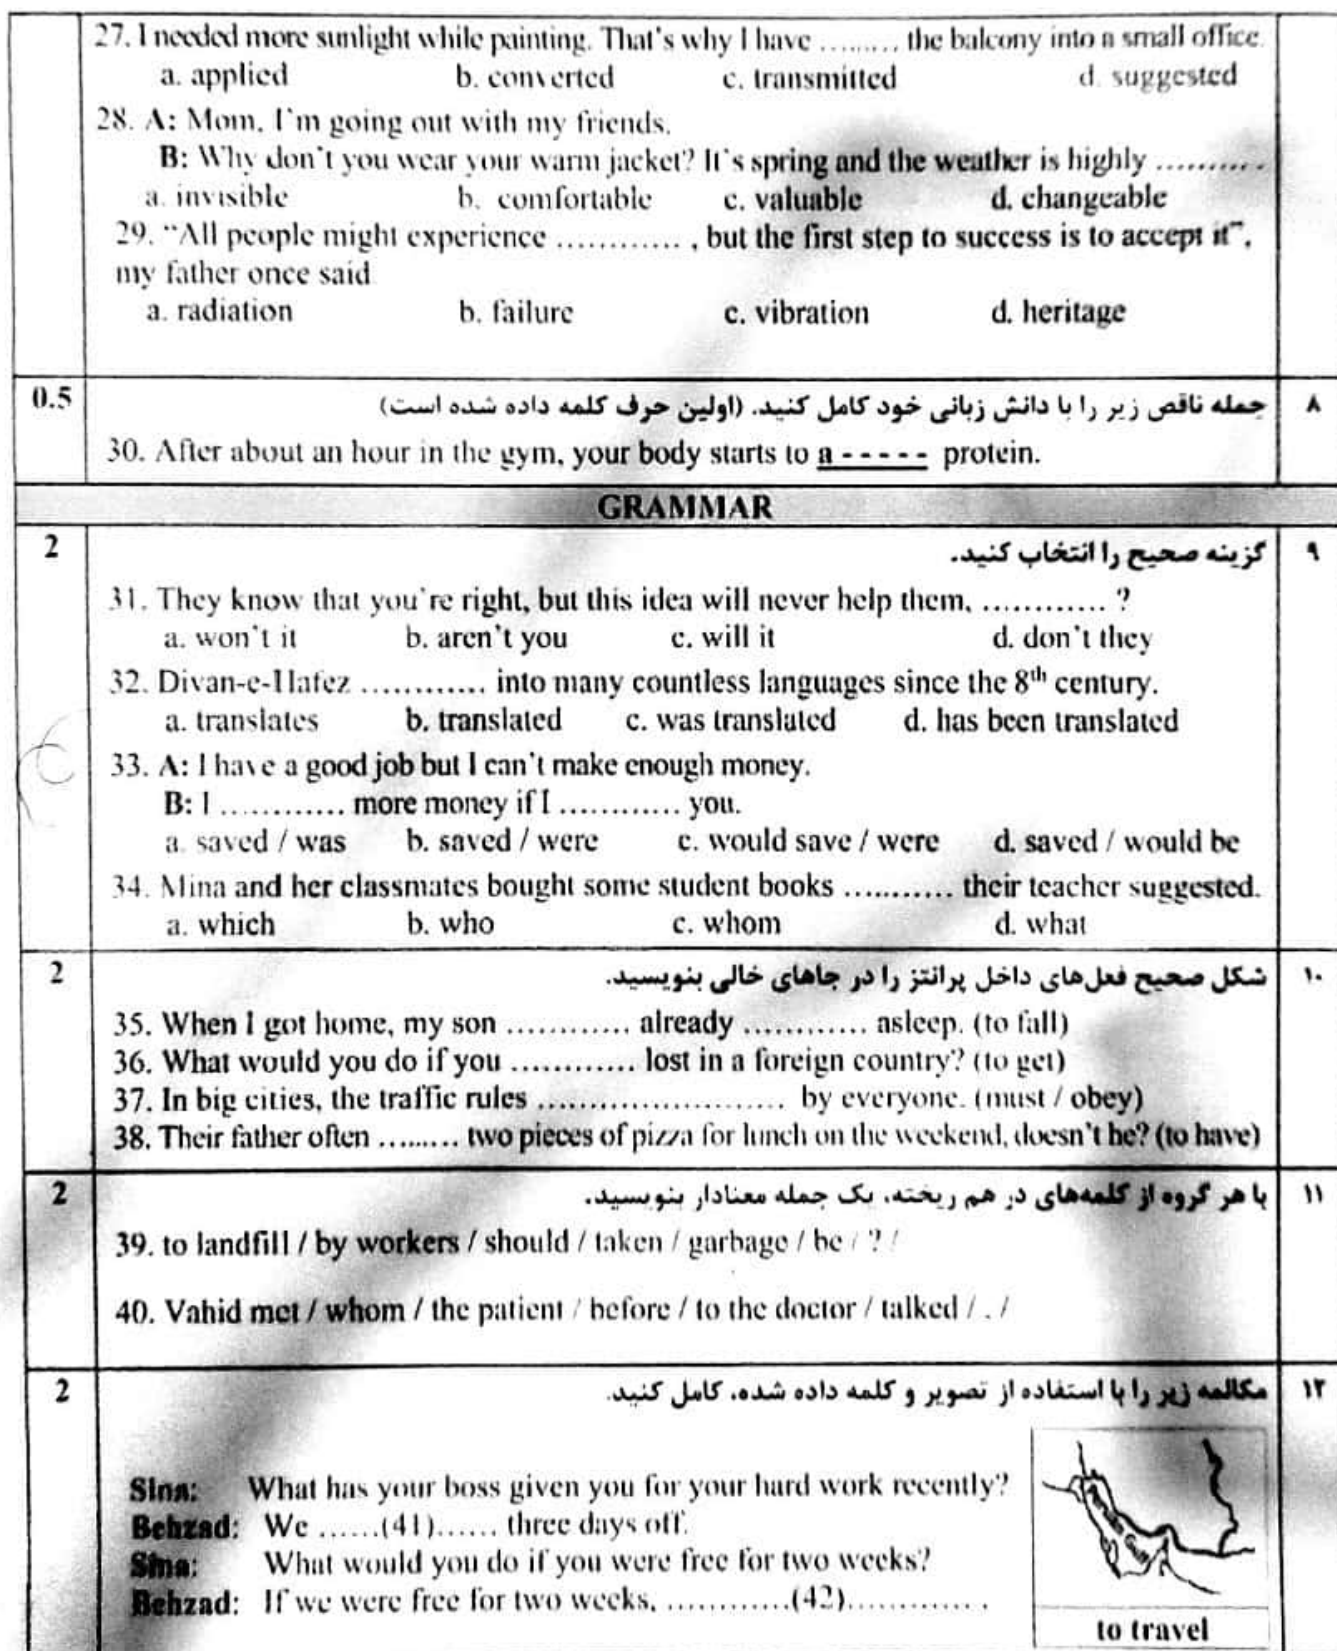 27. I needed more sunlight while painting. That's why I have ......... the balcony into a small office.
a. applied b. converted c. transmitted d. suggested
28. A: Mom, I'm going out with my friends.
B: Why don't you wear your warm jacket? It's spring and the weather is highly ...........
a. invisible b. comfortable c. valuable d. changeable
29. “All people might experience ............ , but the first step to success is to accept it”,
my father once said
a. radiation b. failure c. vibration d. heritage
0.5 جمله ناقص زیر را با دانش زبانی خود کامل کنید. (اولین حرف کلمه داده شده است) ۸
30. After about an hour in the gym, your body starts to a - - - - - protein.
GRAMMAR
2 گزینه صحیح را انتخاب کنید. ۹
31. They know that you're right, but this idea will never help them, ............ ?
a. won't it b. aren't you c. will it d. don't they
32. Divan-e-Hafez ............ into many countless languages since the 8th century.
a. translates b. translated c. was translated d. has been translated
33. A: I have a good job but I can't make enough money.
B: I ............ more money if I ............ you.
a. saved / was b. saved / were c. would save / were d. saved / would be
34. Mina and her classmates bought some student books ........... their teacher suggested.
a. which b. who c. whom d. what
2 شکل صحیح فعل‌های داخل پرانتز را در جاهای خالی بنویسید. ۱۰
35. When I got home, my son ............ already ............ asleep. (to fall)
36. What would you do if you ............ lost in a foreign country? (to get)
37. In big cities, the traffic rules ........................ by everyone. (must / obey)
38. Their father often ......... two pieces of pizza for lunch on the weekend, doesn't he? (to have)
2 با هر گروه از کلمه‌های در هم ریخته، یک جمله معنادار بنویسید. ۱۱
39. to landfill / by workers / should / taken / garbage / be / ? /
40. Vahid met / whom / the patient / before / to the doctor / talked / . /
2 مکالمه زیر را با استفاده از تصویر و کلمه داده شده، کامل کنید. ۱۲
Sina: What has your boss given you for your hard work recently?
Behzad: We ......(41)...... three days off.
Sina: What would you do if you were free for two weeks?
Behzad: If we were free for two weeks, ............(42).............
to travel